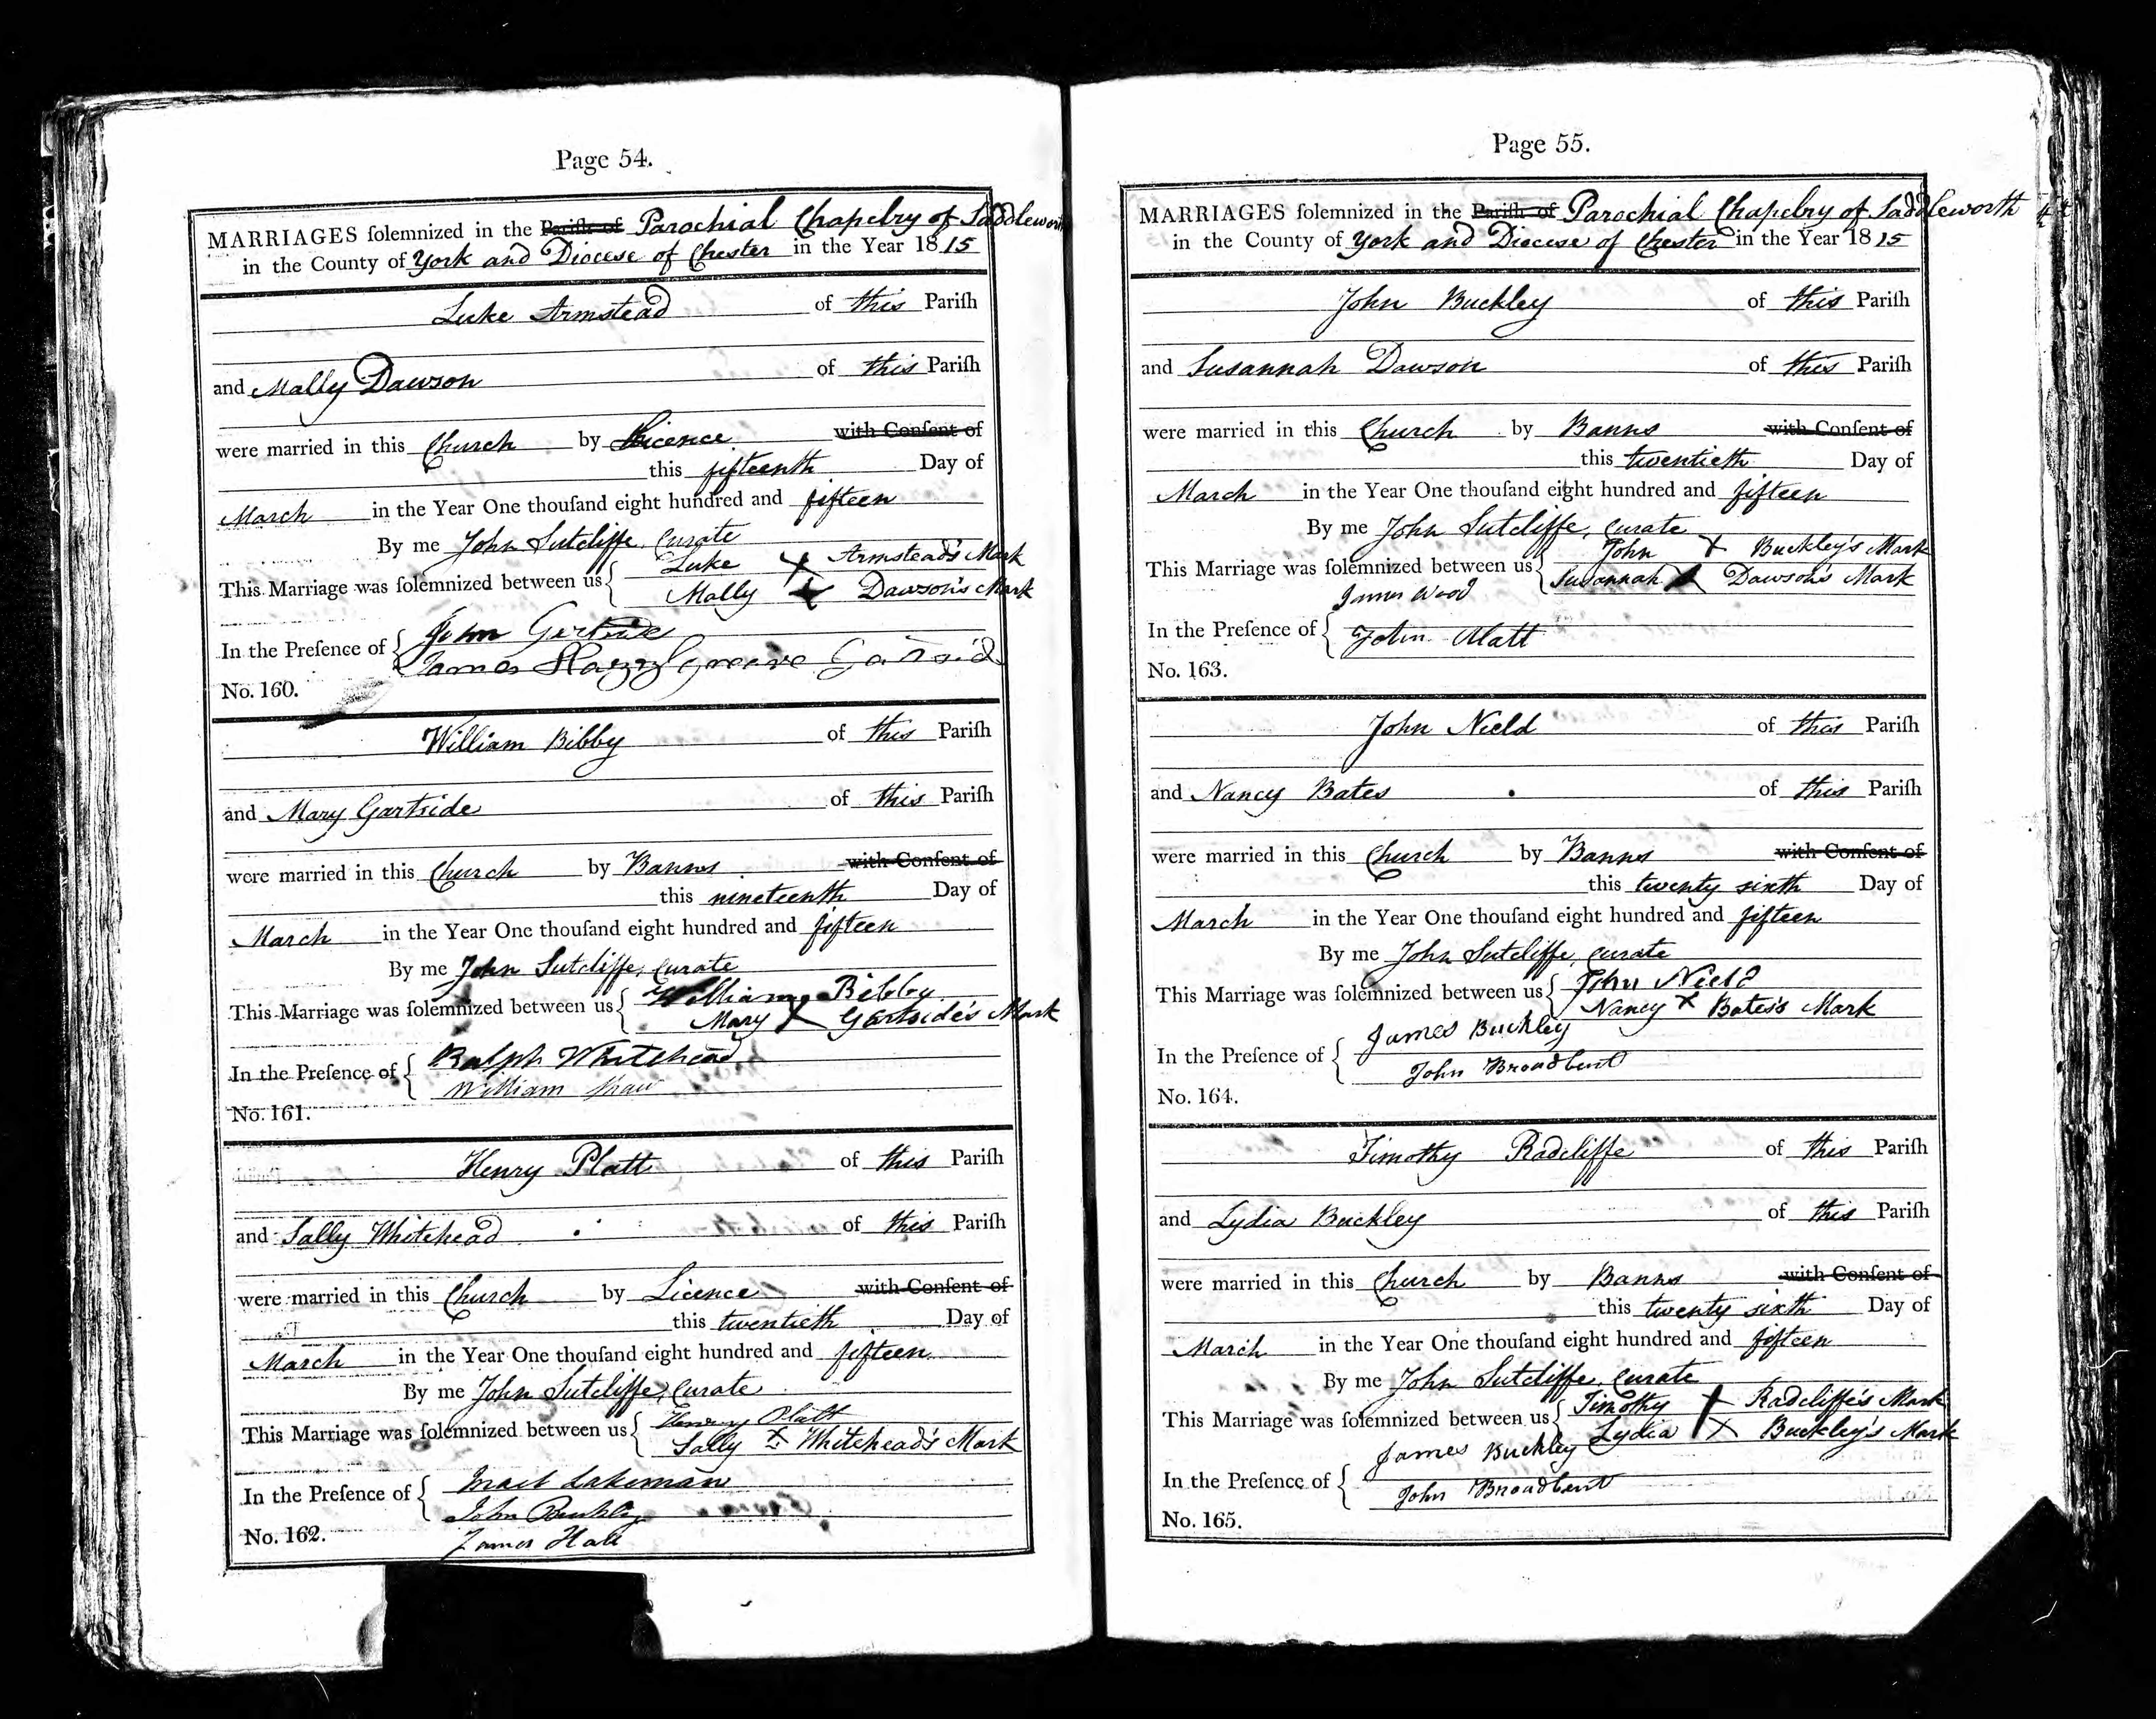 Page 54.
MARRIAGES ſolemnized in the Pariſh of Parochial Chapelry of Saddleworth
in the County of York and Diocese of Chester in the Year 1815
Luke Armstead of this Pariſh
and Mally Dawson of this Pariſh
were married in this Church by Licence with Conſent of
this fifteenth Day of
March in the Year One thouſand eight hundred and fifteen
By me John Sutcliffe, Curate
This Marriage was ſolemnized between us { Luke X Armstead's Mark
Mally X Dawson's Mark
In the Preſence of { John
James
No. 160.
William Bibby of this Pariſh
and Mary Gartside of this Pariſh
were married in this Church by Banns with Conſent of
this nineteenth Day of
March in the Year One thouſand eight hundred and fifteen
By me John Sutcliffe, Curate
This Marriage was ſolemnized between us { William Bibby
Mary X Gartside's Mark
In the Preſence of { Ralph Whitehead
William Shaw
No. 161.
Henry Platt of this Pariſh
and Sally Whitehead of this Pariſh
were married in this Church by Licence with Conſent of
this twentieth Day of
March in the Year One thouſand eight hundred and fifteen
By me John Sutcliffe, Curate
This Marriage was ſolemnized between us { Henry Platt
Sally X Whitehead's Mark
In the Preſence of { Lakeman
John Buckley
No. 162. James Hall
Page 55.
MARRIAGES ſolemnized in the Pariſh of Parochial Chapelry of Saddleworth
in the County of York and Diocese of Chester in the Year 1815
John Buckley of this Pariſh
and Susannah Dawson of this Pariſh
were married in this Church by Banns with Conſent of
this twentieth Day of
March in the Year One thouſand eight hundred and fifteen
By me John Sutcliffe, Curate
This Marriage was ſolemnized between us { John X Buckley's Mark
Susannah X Dawson's Mark
James Wood
In the Preſence of { John Platt
No. 163.
John Nield of this Pariſh
and Nancy Bates of this Pariſh
were married in this Church by Banns with Conſent of
this twenty sixth Day of
March in the Year One thouſand eight hundred and fifteen
By me John Sutcliffe, Curate
This Marriage was ſolemnized between us { John Nield
Nancy X Bates's Mark
In the Preſence of { James Buckley
John Broadbent
No. 164.
Timothy Radcliffe of this Pariſh
and Lydia Buckley of this Pariſh
were married in this Church by Banns with Conſent of
this twenty sixth Day of
March in the Year One thouſand eight hundred and fifteen
By me John Sutcliffe, Curate
This Marriage was ſolemnized between us { Timothy X Radcliffe's Mark
Lydia X Buckley's Mark
In the Preſence of { James Buckley
John Broadbent
No. 165.